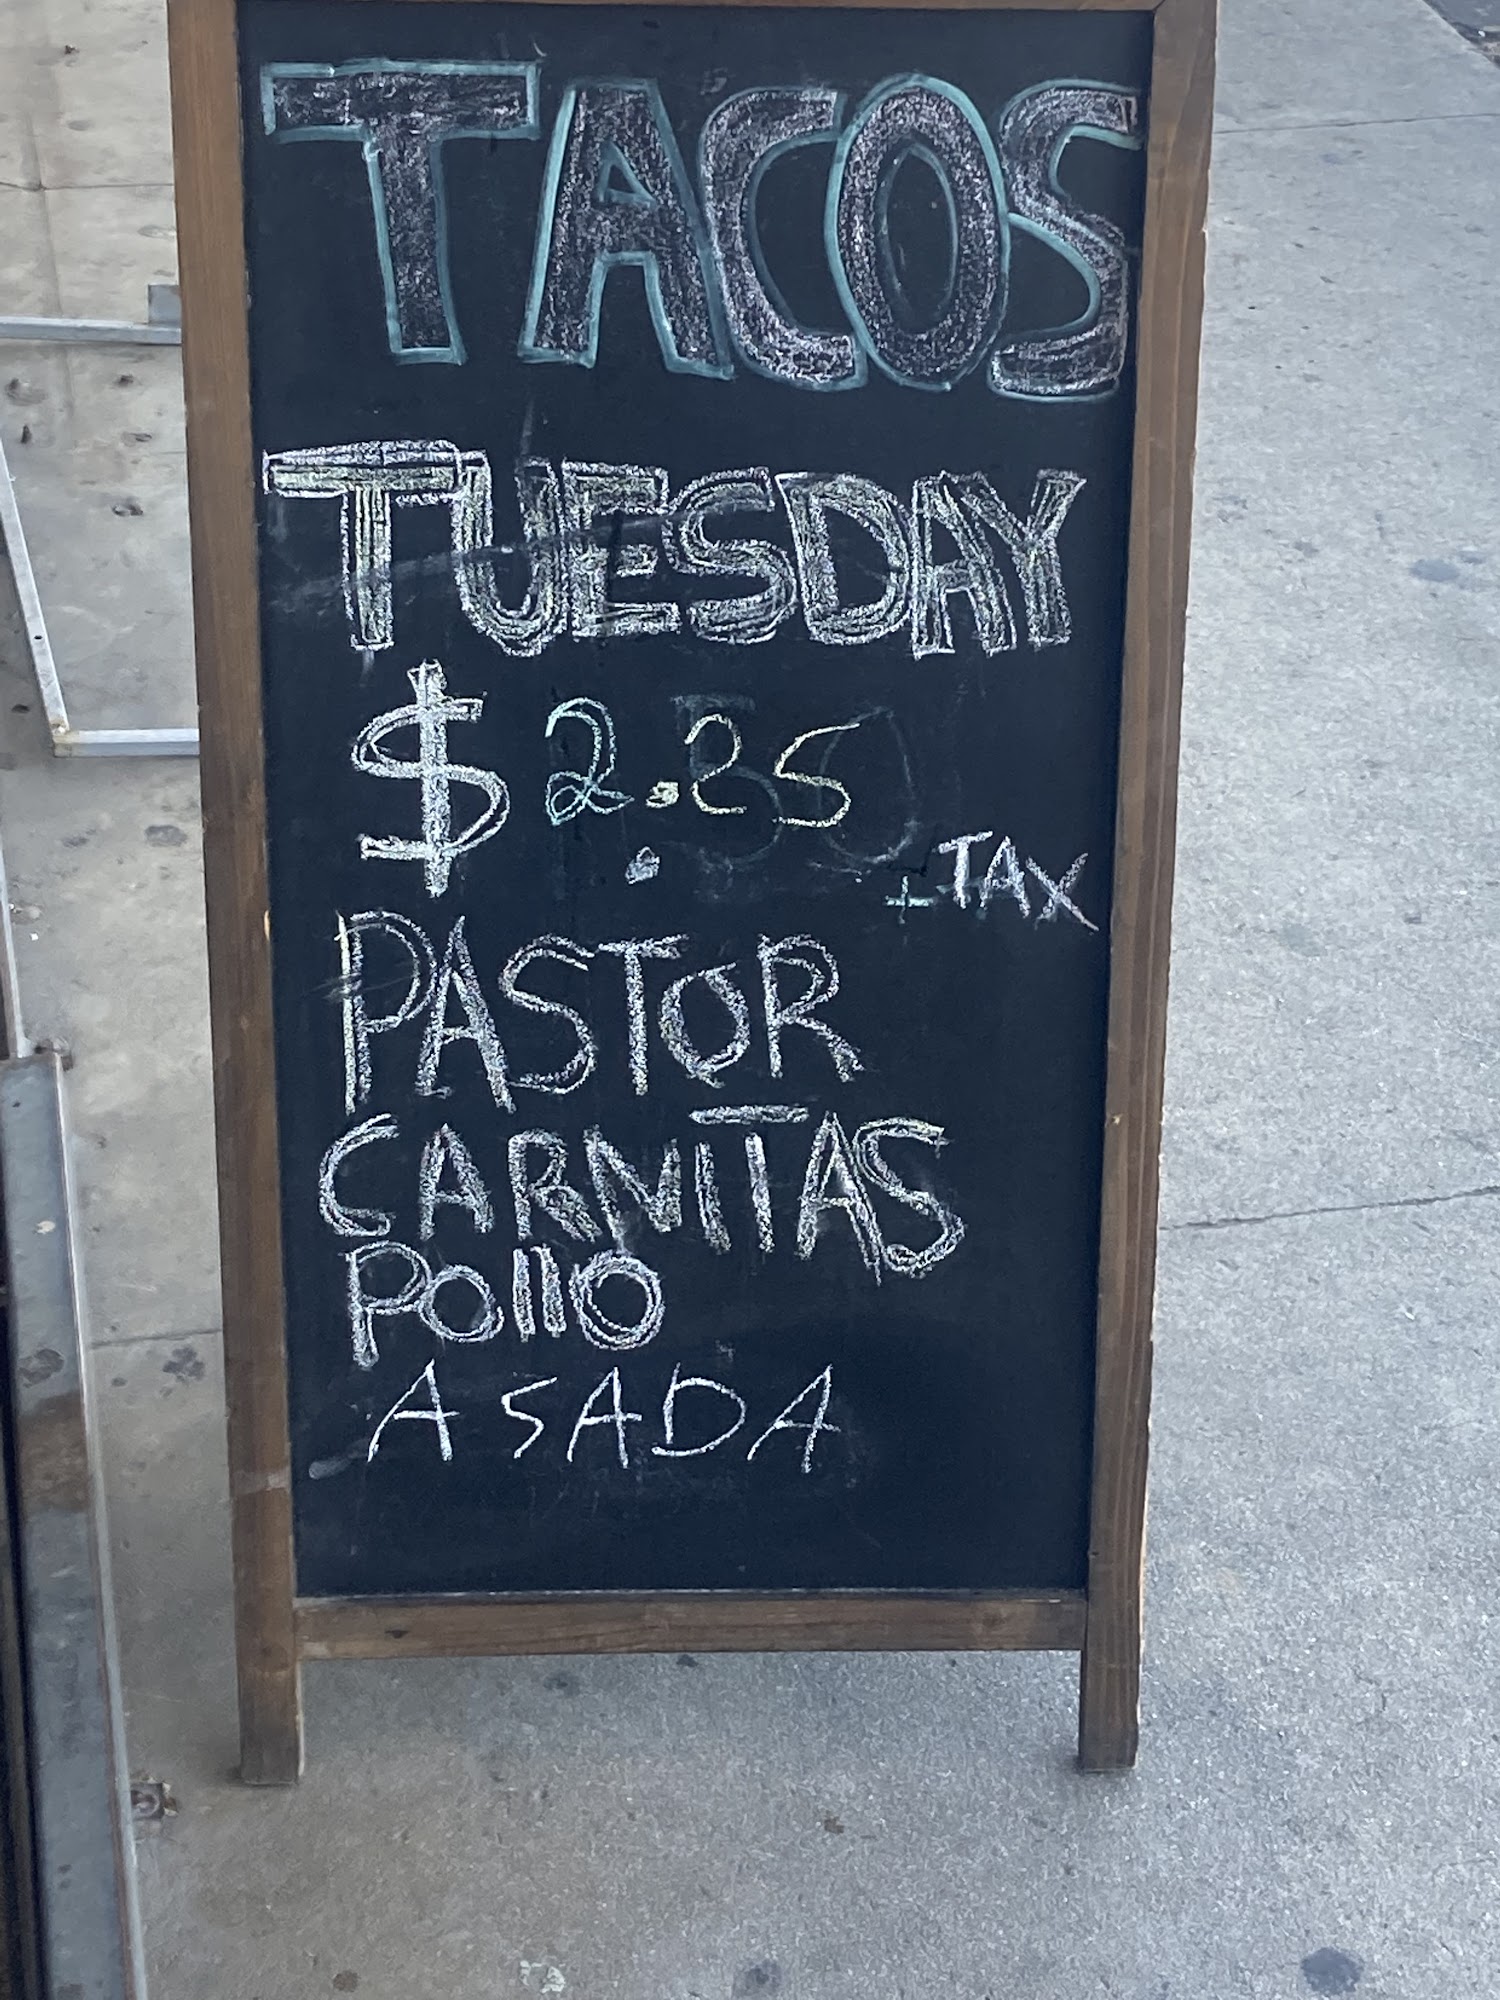 TACOS
TUESDAY
$ 2.25
+ TAX
PASTOR
CARNITAS
Pollo
ASADA